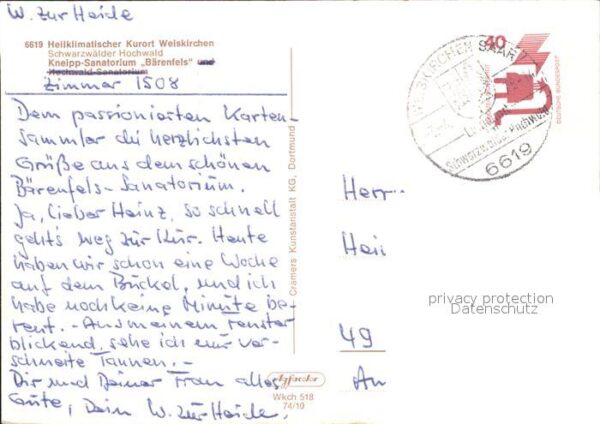 W. zur Heide
6619 Heilklimatischer Kurort Weiskirchen
Schwarzwälder Hochwald
Kneipp-Sanatorium „Bärenfels" und
Hochwald-Sanatorium
Zimmer 1508
Dem passioniertesten Karten-
sammler die herzlichsten
Grüße aus dem schönen
Bärenfels-Sanatorium.
Ja, lieber Heinz, so schnell
geht's weg zur Kur. Heute
haben wir schon eine Woche
auf dem Buckel, und ich
habe noch keine Minute be-
reut. - Aus meinem Fenster
blickend, sehe ich nur ver-
schneite Tannen. -
Dir und Deiner Frau alles
Gute, Dein W. zur Heide.
Cramers Kunstanstalt KG, Dortmund
Wkch 518
74/10
40
DEUTSCHE BUNDESPOST
WEISKIRCHEN SAAR
Schwarzwälder Hochwald
6619
Herr
Hei
49
An
privacy protection
Datenschutz